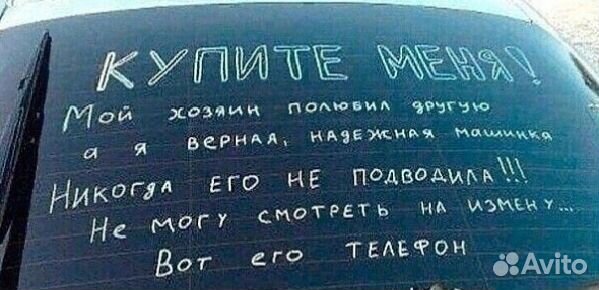 КУПИТЕ МЕНЯ!
Мой хозяин полюбил другую
а я верная, надежная машинка
Никогда его не подводила!!!
Не могу смотреть на измену...
Вот его телефон
Avito